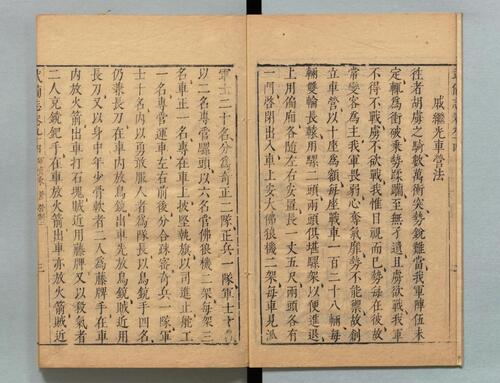 戚繼光車營法
往者胡虜之騎數萬衝突勢銳難當我軍陣伍未
定輒爲衝破乘勢蹂躪至無孑遺且虜欲戰我軍
不得不戰虜不欲戰我惟目視而已勢每在彼故
常變客爲主我軍畏弱心奪氣靡勢不能禦故創
立車營以十座爲額每座戰車一百二十八輛每
輛雙輪長轅用騾二頭兩頭俱堪騾架以便進退
上用偏廂各隨左右安置長一丈五尺兩頭各有
一門啓閉出入車上安大佛狼機二架每車見派
軍士二十名分爲奇正二隊正兵一隊軍士十名
以二名專管騾頭以六名管佛狼機二架每架三
名車正一名專在車上披堅執旗以司進止舵工
一名專管運車左右前後分合疎密奇兵一隊軍
士十名內以勇敢服人者爲隊長以鳥銃手四名
仍兼長刀在車內放鳥銃出車先放鳥銃賊近用
長刀又以身中年少骨軟者二人爲藤牌手在車
內放火箭出車打石塊賊近用藤牌又以殺氣者
二人充鏜鈀手在車放火箭出車亦放火箭賊近